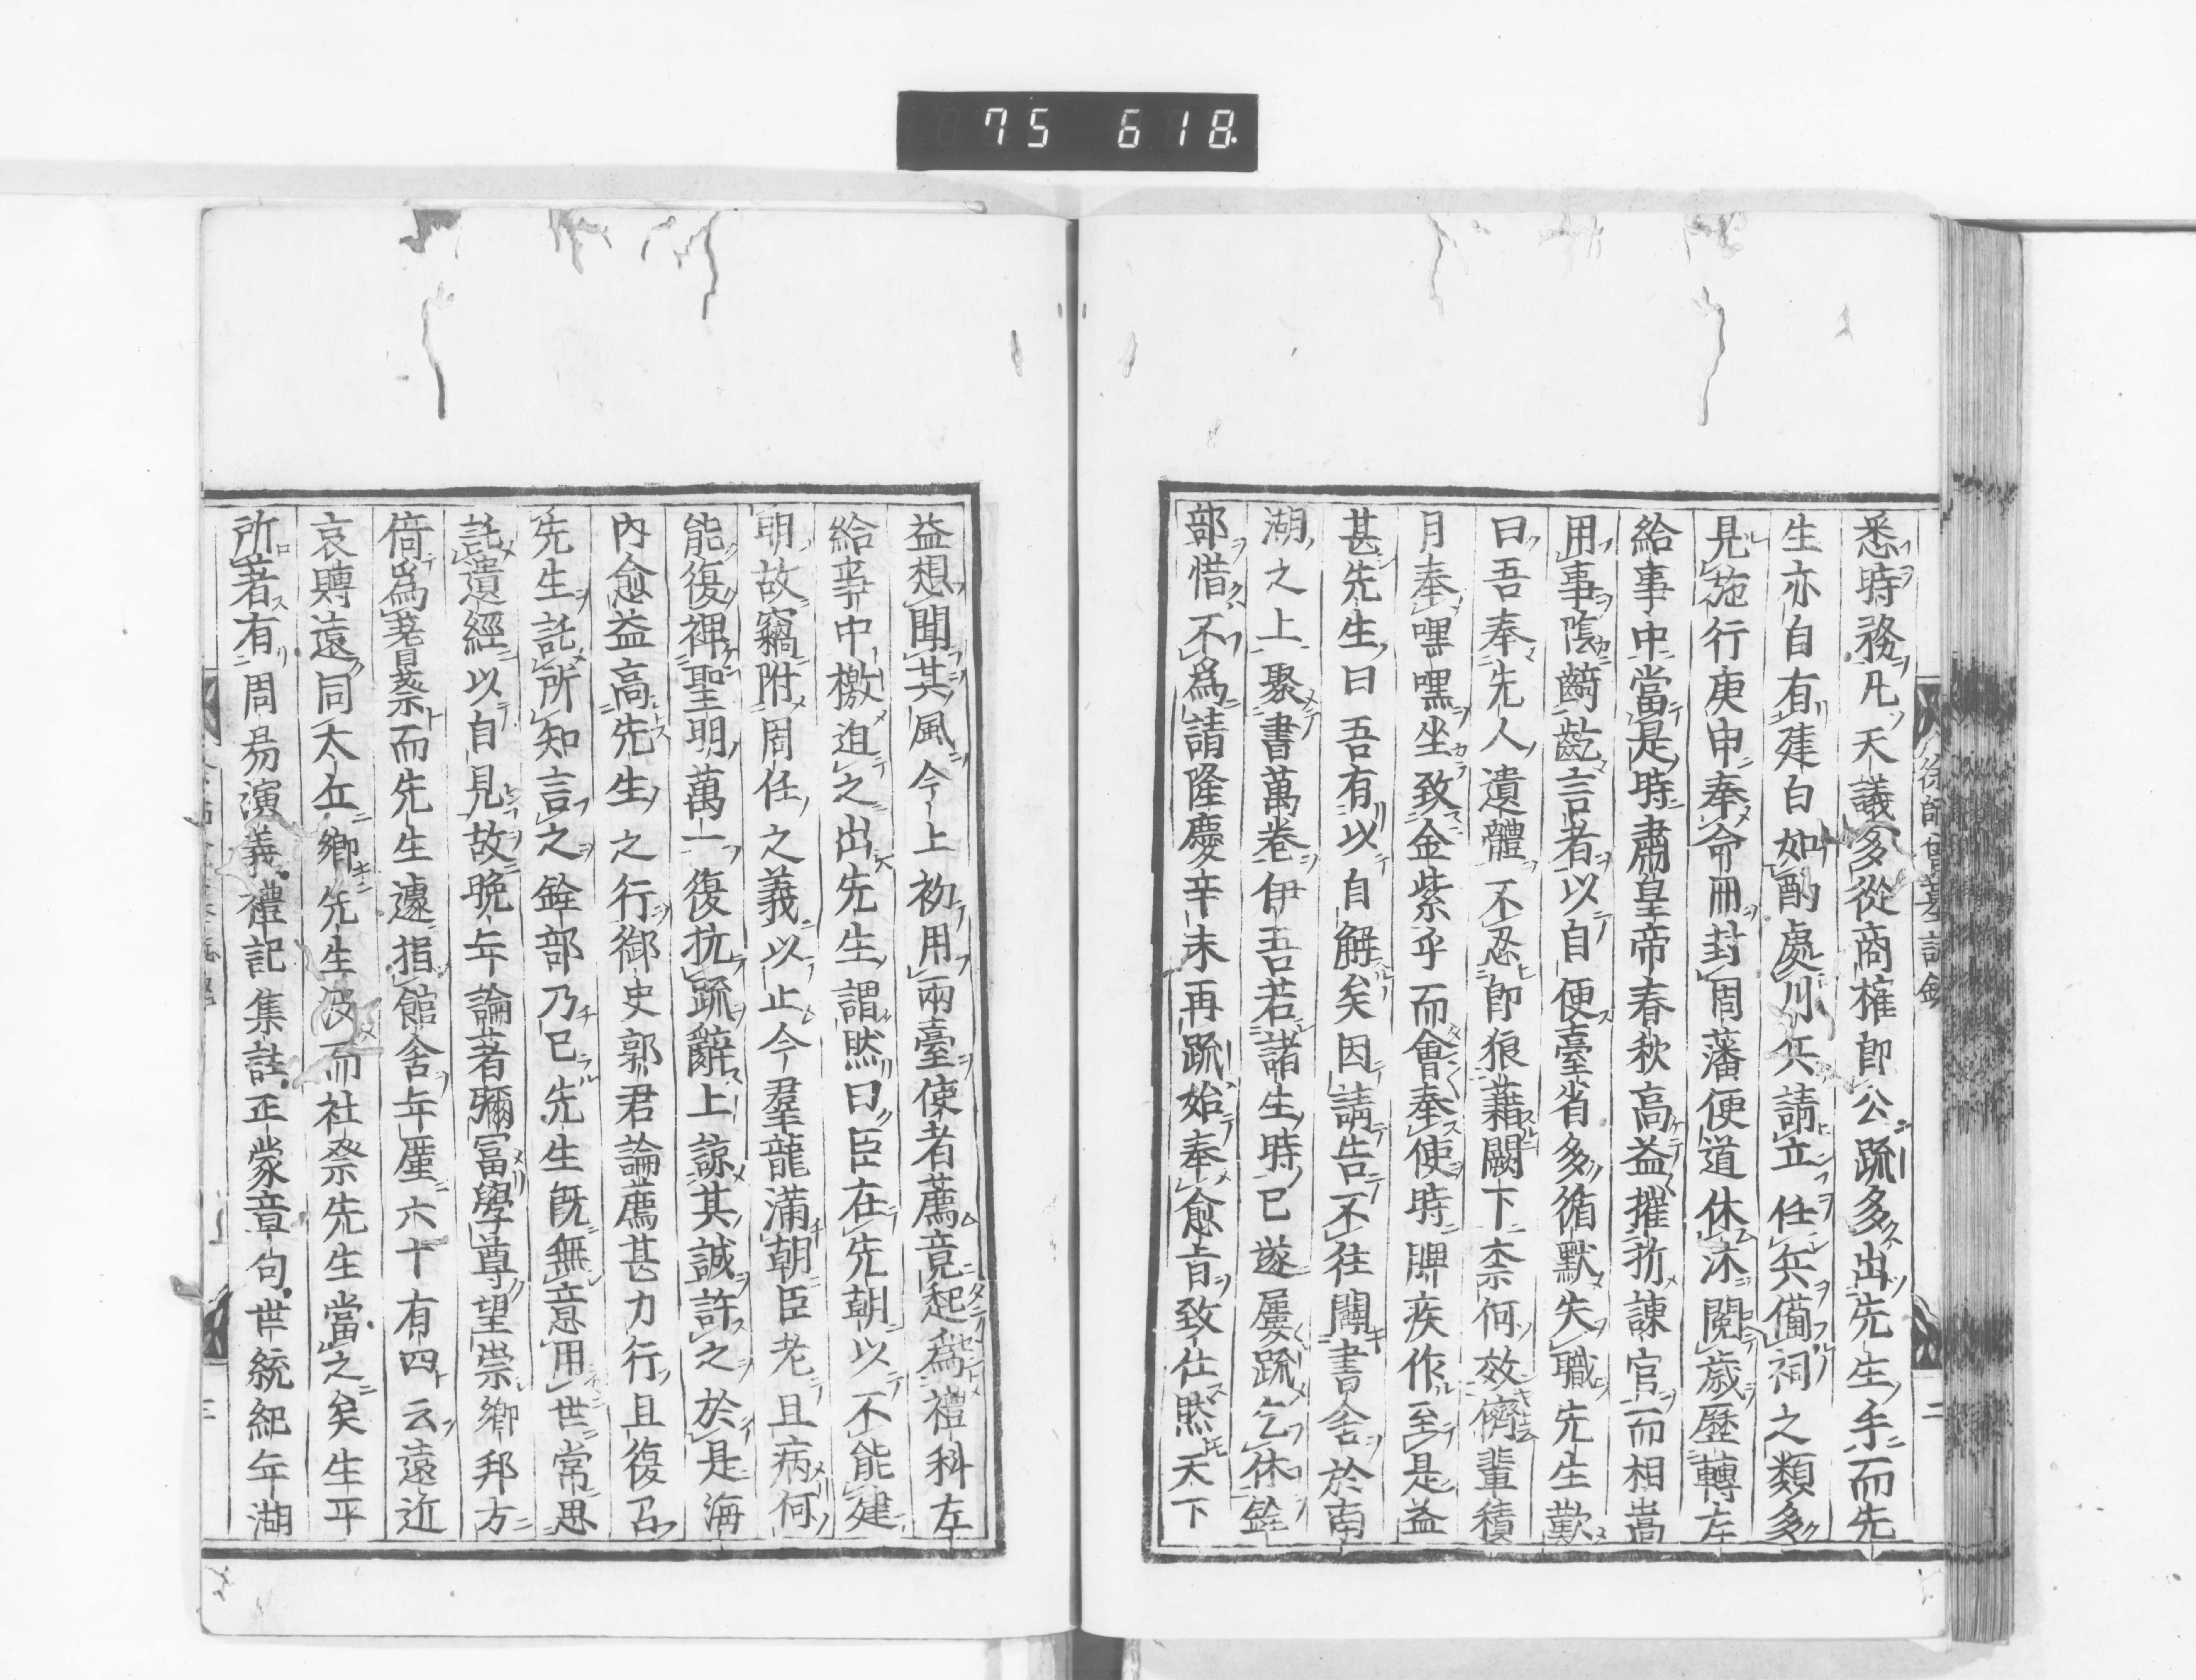 75 618
悉時務凡大議多從商搉即公疏多出先生手而先
生亦自有建白如酌處川兵請立任兵備祠之類多
見施行庚申奉命冊封周藩便道休沐閱歲歷轉左
給事中當是時肅皇帝春秋高益摧折諫官而相嵩
用事陰齮齕言者以自便臺省多循默失職先生歎
曰吾奉先人遺體不忍即狼藉闕下柰何效儕輩積
月奉嘿嘿坐致金紫乎而會奉使時脾疾作至是益
甚先生曰吾有以自解矣因請告不往闢書舍於南
湖之上聚書萬卷伊吾若諸生時已遂屢疏乞休銓
部惜不為請隆慶辛未再疏始奉愈旨致仕然天下
徐師曾墓誌銘
二
益想聞其風今上初用兩臺使者薦竟起為禮科左
給事中檄迫之出先生謂然曰臣在先朝以不能建
明故竊附周任之義以止今羣龍滿朝臣老且病何
能復裨聖明萬一復抗疏辭上諒其誠許之於是海
內愈益高先生之行御史郭君論薦甚力行且復召
先生託所知言之銓部乃已先生既無意用世常思
託遺經以自見故晚年論著彌富學尊望崇鄉邦方
倚為蓍蔡而先生遽捐館舍年厪六十有四云遠近
哀賻遠同太丘鄉先生沒而社祭先生當之矣生平
所著有周易演義禮記集註正蒙章句世統紀年湖